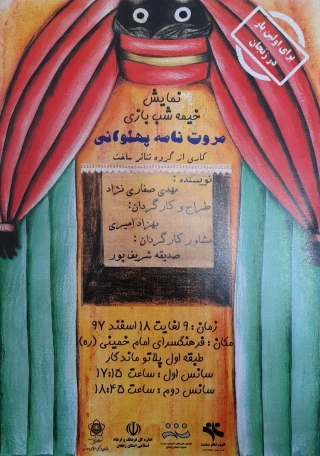 برای اولین بار
در زنجان
نمایش
خیمه شب بازی
مروت نامه پهلوانی
کاری از گروه تئاتر ساخت
نویسنده :
مهدی صفاری نژاد
طراح و کارگردان :
بهزاد امیری
مشاور کارگردان :
صدیقه شریف پور
زمان : ۹ لغایت ۱۸ اسفند ۹۷
مکان : فرهنگسرای امام خمینی (ره)
طبقه اول پلاتو ماندگار
سانس اول : ساعت ۱۷:۱۵
سانس دوم : ساعت ۱۸:۴۵
اداره کل فرهنگ و ارشاد
اسلامی استان زنجان